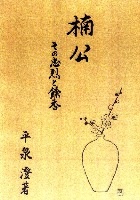 楠公
その忠烈と餘香
平泉 澄著